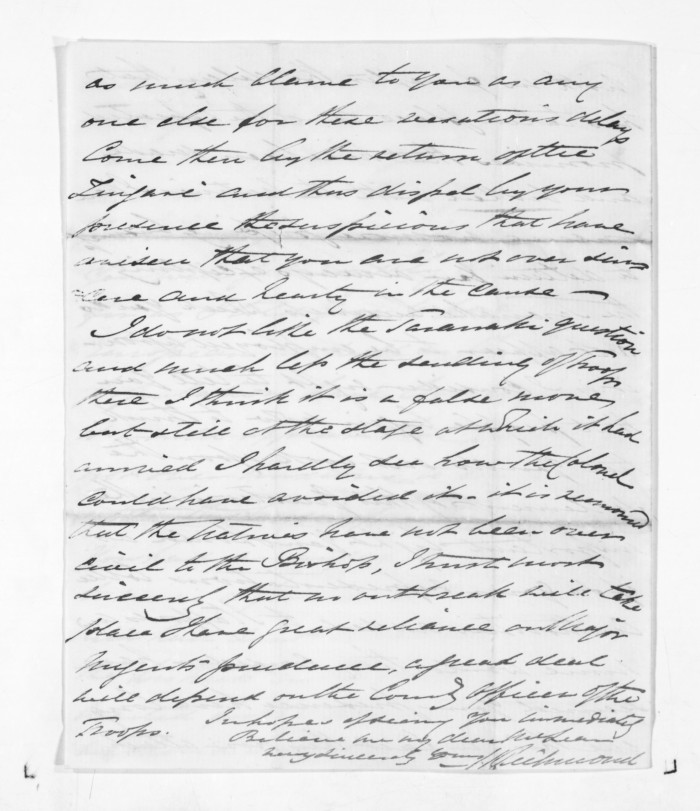 as much blame to you as any
one else for these vexatious delays
Come then by the return of the
Zingari and thus dispel by your
presence the suspicions that have
arisen that you are not over sin
cere and hearty in the cause —
I do not like the Taranaki question
and much less the sending of Troops
there I think it is a false move,
but still at the stage at which it had
arrived I hardly see how the Colonel
could have avoided it - it is rumoured
that the Natives have not been over
civil to the Bishop, I trust most
sincerely that no outbreak will take
place I have great reliance on Major
Nugent's prudence, a great deal
will depend on the Comg officer of the
Troops.
In hopes of seeing you immediately
Believe me my dear McLean
very sincerely yours
Richmond